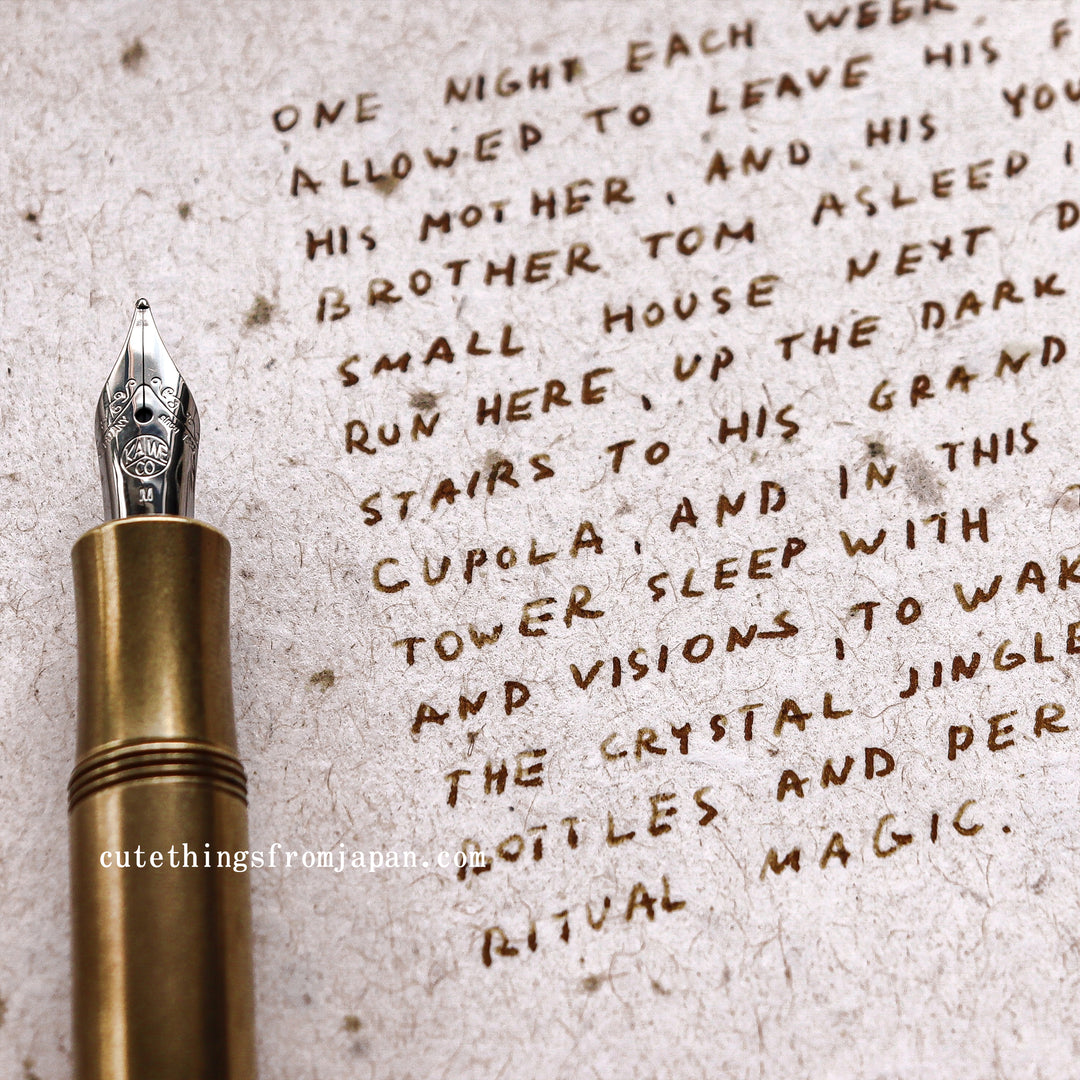 ONE NIGHT EACH WEEK
ALLOWED TO LEAVE HIS
HIS MOTHER, AND HIS
BROTHER TOM ASLEEP
SMALL HOUSE NEXT
RUN HERE, UP THE DARK
STAIRS TO HIS GRAND
CUPOLA, AND IN THIS
TOWER SLEEP WITH
AND VISIONS, TO
THE CRYSTAL JINGLE
BOTTLES AND
RITUAL MAGIC.
KAWE
CO
M
cutethingsfromjapan.com